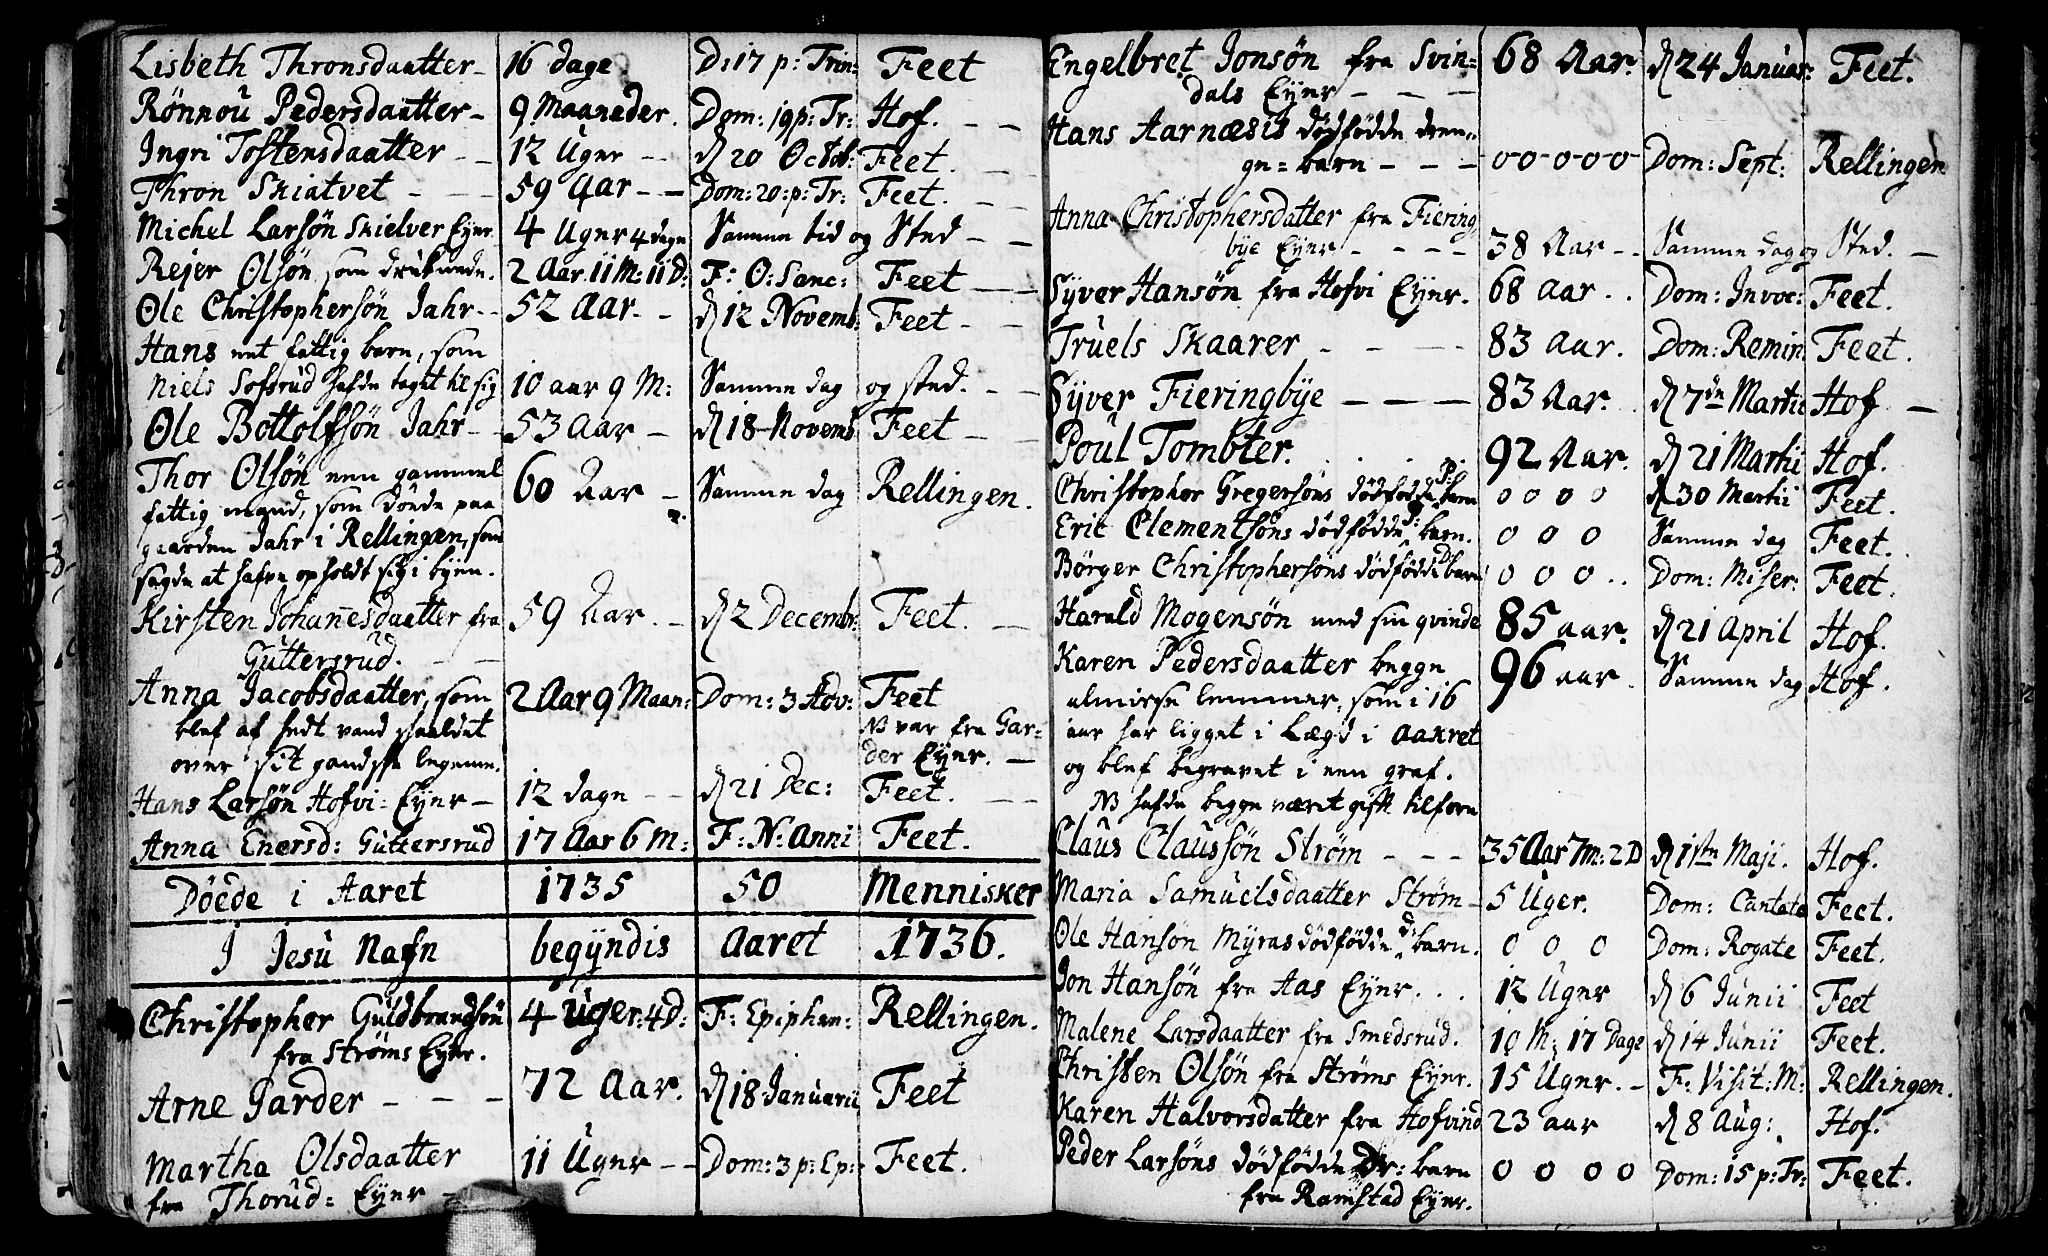 Lisbeth Thronsdaatter - 16 dage D: 17 p: Trin: Feet
Rönnou Pedersdaatter - 9 Maaneder. Dom: 19 p: Tr: Hof. - -
Ingri Tostensdaatter - - 12 Uger - - d 20 Octob: Feet. - -
Thron Skiatvet - - - 59 Aar - - Dom: 20: p: Tr: Feet. - -
Michel Larsön Skielver Eyer. 4 Uger 4 dage Samme tid og Sted - -
Rejer Olsön som druknede. 2 Aar 11 M: 11 D: F: O: Sanc: Feet - -
Ole Christophersön Jahr - - 52 Aar - - d 12 Novemb: Feet - -
Hans eet fattig barn, som
Niels Sofsrud hafde taget til sig 10 aar 9 M: Samme dag og sted. - -
Ole Bottolfsön Jahr - - 53 Aar - d 18 Novemb Feet - -
Thor Olsön een gammel 60 Aar - Samme dag Rellingen.
fattig mand, som döede paa
gaarden Jahr i Rellingen, som
sagde at hafve opholdt sig i byen.
Kirsten Johannesdaatter fra 59 Aar. - d 2 Decemb: Feet. -
Guttersrud. - -
Anna Jacobsdaatter, som 2 Aar 9 Maan: Dom: 3 Adv: Feet
blef af hedt vand skaaldet NB var fra Gar=
over sit gandske legeme. der Eyer. -
Hans Larsön Hofvi = Eyer - 12 dage - - d 21 Dec: Feet. - -
Anna Enersd: Guttersrud 17 Aar 6 M: F: N: Anni Feet.
Döede i Aaret 1735 50 Mennisker
I Jesu Nafn begyndis Aaret 1736.
Christopher Guldbrandsön 4 Uger: 4 D: F: Epiphan: Rellingen.
fra Ströms Eyer.
Arne Jarder - - - 72 Aar. d 18 Januarii Feet
Martha Olsdaatter 11 Uger - - Dom: 3 p: Ep: Feet.
fra Thorud = Eyer -
Engelbret Jonsön fra Svin= 68 Aar. d 24 Januar: Feet.
dals Eyer - - -
Hans Aarnæsis dödfödde dren=
ge = barn - - - 0-0-0-0-0 Dom: Sept: Rellingen
Anna Christophersdatter fra Fiering
bye Eyer - - - - 38 Aar - - Samme dag og Sted. -
Syver Hansön fra Hofvi Eyer. 68 Aar . . Dom: Invoc: Feet.
Truels Skaarer - - - - 83 Aar. Dom: Remin. Feet.
Syver Fieringbye - - - 83 Aar. d 7de Martii Hof -
Poul Tombter. . . . 92 Aar. d 21 Martii Hof.
Christopher Gregersöns dödfödde P: barn 0 0 0 0 d 30 Martii Feet.
Eric Clementsöns dödfödde d: barn. 0 0 0 Samme dag Feet.
Börger Christophersöns dödfödde D: barn 0 0 0 . . Dom: Miser: Feet.
Harald Mogensön med sin qvinde 85 aar. d 21 April Hof.
Karen Pedersdaatter begge 96 aar. Samme dag Hof.
almisse lemmer, som i 16
aar har ligget i Lægd i Aakret
og blef begravet i een graf.
NB hafde begge været gift tilforn
Claus Claussön Ström - - - 35 Aar 7 m: 2 D d 1ste Maji. Hof.
Maria Samuelsdaatter Ström - 5 Uger. Dom: Cantate Feet.
Ole Hansön Myras dödfödde d: barn. 0 0 0 Dom: Rogate Feet.
Jon Hansön fra Aas Eyer. . . 12 Uger d 6 Junii Feet
Malene Larsdaatter fra Smedsrud. 10 M: 17 Dage d 14 Junii Feet.
Christen Olsön fra Ströms Eyer. 15 Uger. - F: Visit: M: Rellingen.
Karen Halvorsdatter fra Hofvind 23 aar d 8 Aug: Hof.
Peder Larsöns dödfödde Dr: barn 0 0 0 0 Dom: 15 p: Tr: Feet.
fra Ramstad Eyer.